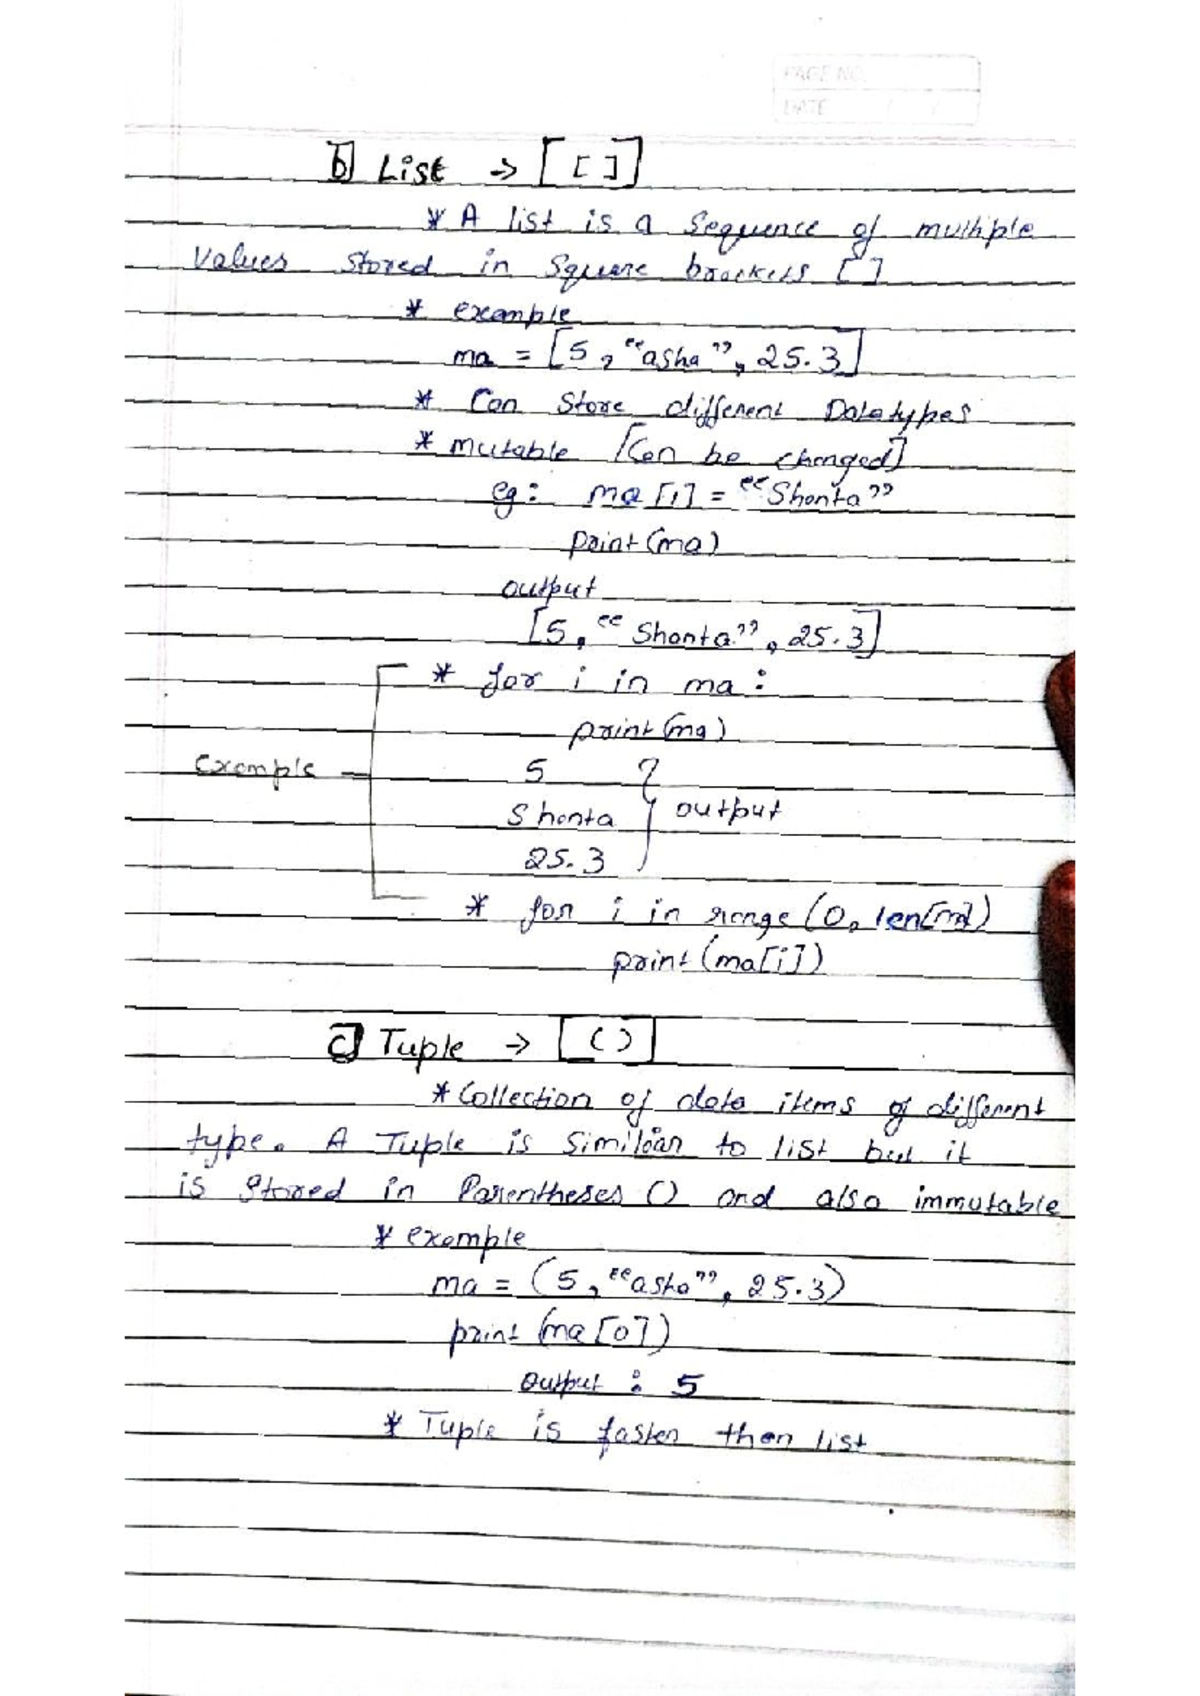 PAGE NO.
DATE / /
b) List → [ [ ] ]
* A list is a Sequence of multiple
Values Stored in Square brackets [ ]
* example
ma = [5, "asha", 25.3]
* Can Store different Datatypes
* mutable [Can be changed]
eg: ma [1] = "Shanta"
print(ma)
output
[5, "Shanta", 25.3]
* for i in ma :
print(ma)
Example
5
Shanta output
25.3
* for i in range (0, len[ma])
print (ma[i])
c) Tuple → [ ( ) ]
* Collection of data items of different
type. A Tuple is Similar to list but it
is Stored in Parentheses () and also immutable
* example
ma = (5, "asha", 25.3)
print (ma [0])
Output : 5
* Tuple is faster then list